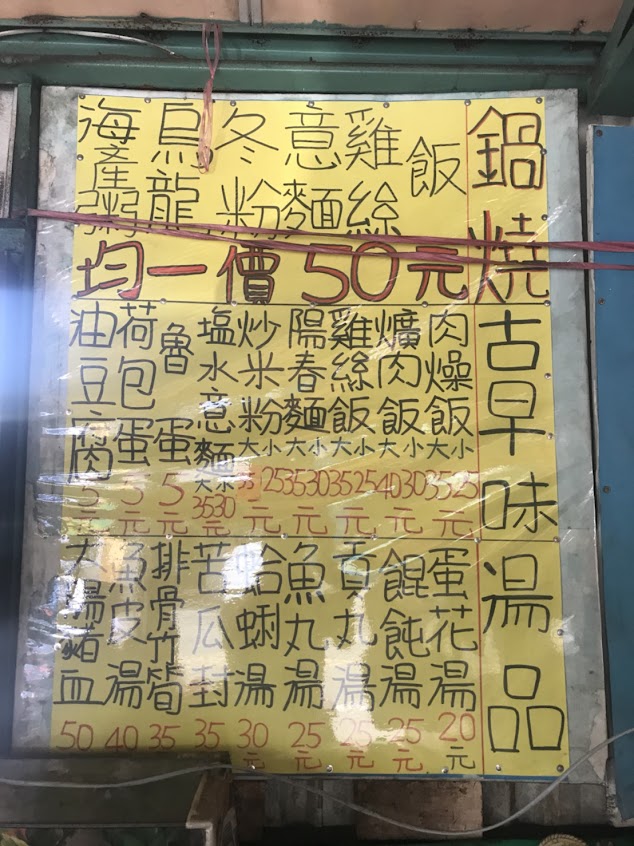 鍋燒
飯
雞絲
意麵
冬粉
烏龍
海產粥
均一價50元
古早味
肉燥飯 大小 35 25元
爌肉飯 大小 40 30元
雞絲飯 大小 35 25元
陽春麵 大小 35 30元
炒米粉 大小 25元
塩水意麵 大小 35 30元
魯蛋 5元
荷包蛋 5元
油豆腐 5元
湯品
蛋花湯 20元
餛飩湯 25元
貢丸湯 25元
魚丸湯 25元
蛤蜊湯 30元
苦瓜封 35
排骨竹筍 35
魚皮湯 40
大腸豬血 50